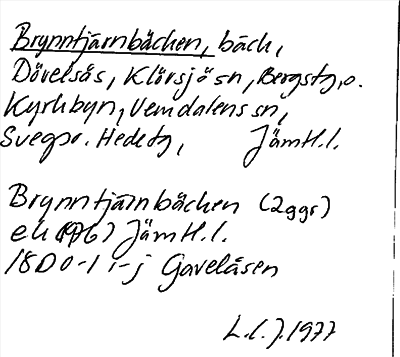 Brynntjärnbäcken, bäck,
Dövelsås, Klövsjö sn, Bergs tg, o.
Kyrkbyn, Vemdalens sn,
Svegs pr. Hede tg, Jämtl.l.
Brynntjärnbäcken (2ggr)
ek (1976) Jämtl.l.
18D 0-1 i-j Gaveläsen
L.l.J. 1977